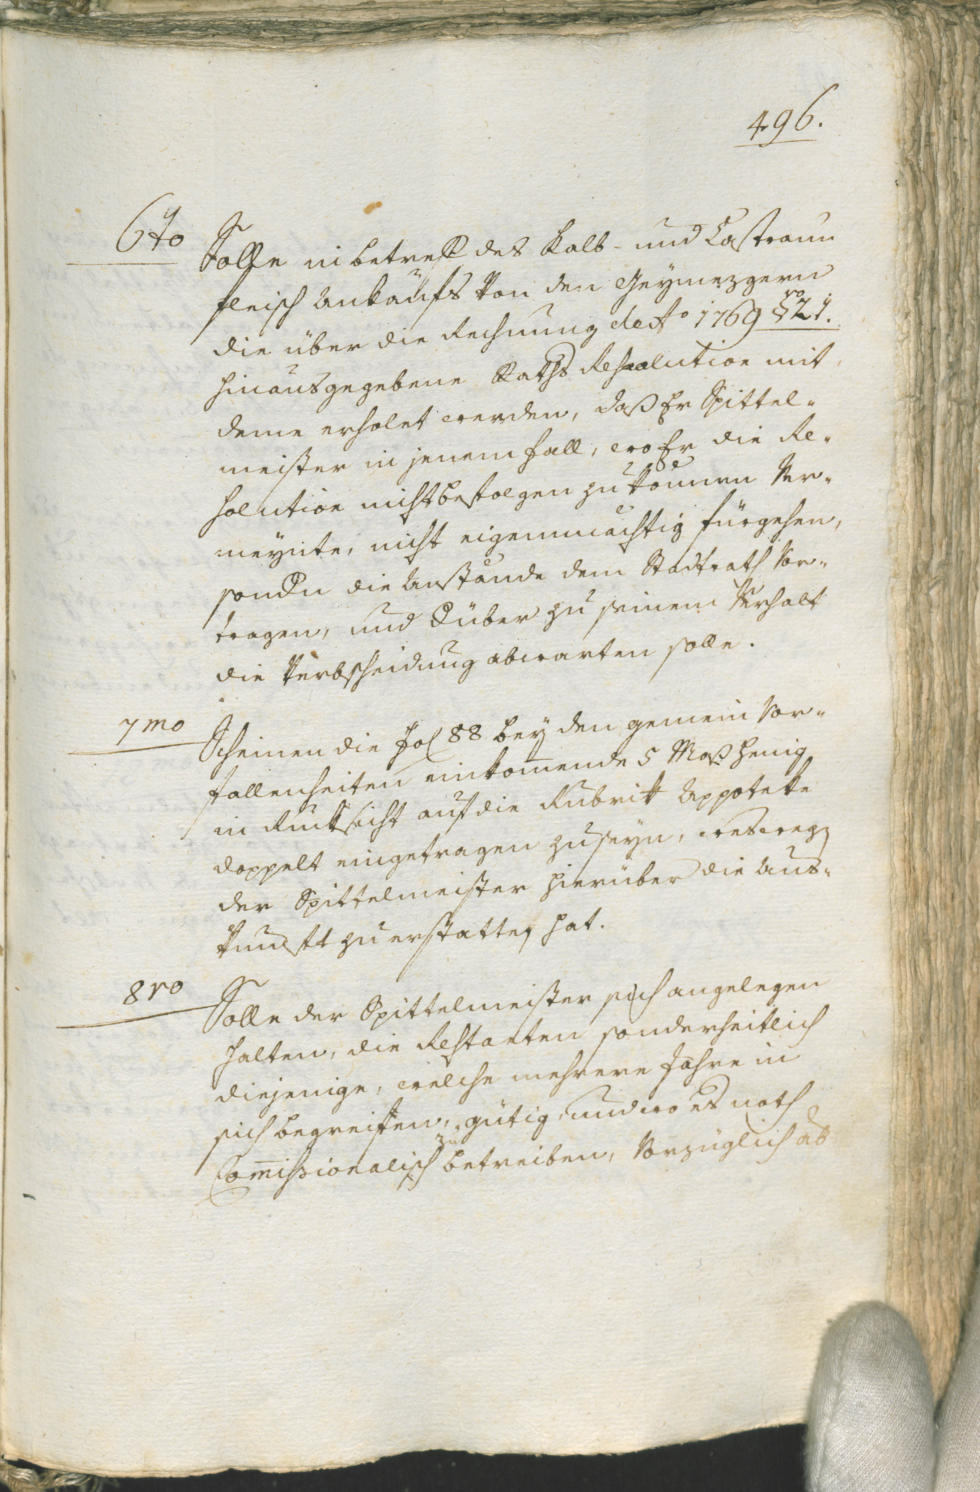 496.
6to Solle in betreff des Kalb- und Castraun
fleisch Ankaufs von den Geymezgern
die über die Rechnung de Ao 1769 §ro 21.
hinausgegebene Raths Resolution mit
deme erholet werden, daß Er Spittel-
meister in jenem Fall, wo Er die Re-
solution nicht befolgen zu können ver-
meynte, nicht eigenmächtig fürgehen,
sondern die Anstände dem Stadtrath vor-
tragen, und darüber zu seinem Verhalt
die Verbscheidung abwarten solle.
7mo Scheinen die Fol 88 bey den gemein Vor-
fallenheiten einkom̄ende 5 Maß Henig
in Rucksicht auf die Rubrik Appoteke
doppelt eingetragen zu seyn, weswegen
der Spittelmeister hierüber die Aus-
kunft zu erstatten hat.
8vo Solle der Spittelmeister sich angelegen
halten, die Restanten sonderheitlich
diejenige, welche mehrere Jahre in
sich begreiffen, gütig, und wo es noth
Com̄issionalisch zu betreiben, vorzüglich ab